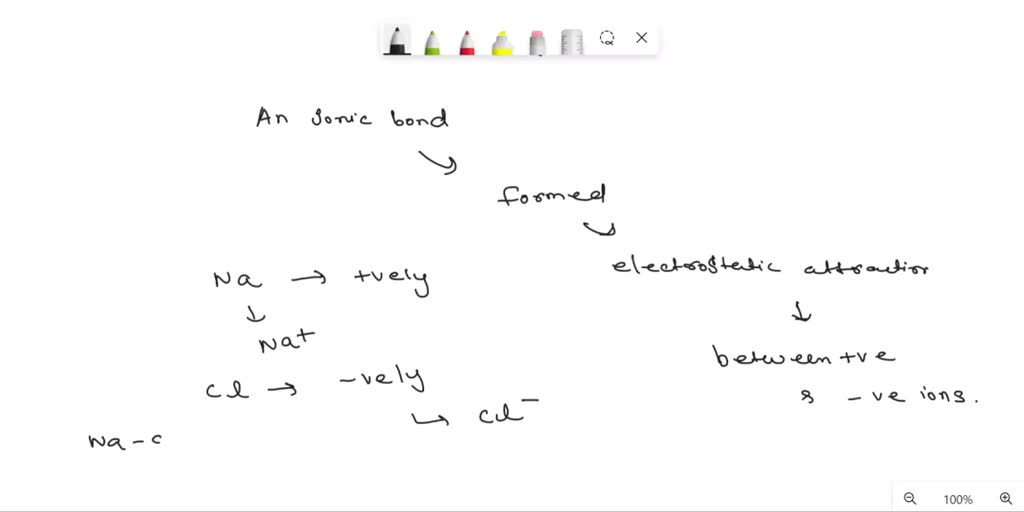 An Ionic bond
formed
electrostatic attraction
Na → +vely
↓
Na+
between +ve
Cl → -vely
& -ve ions.
↳ Cl⁻
Na - c
100%